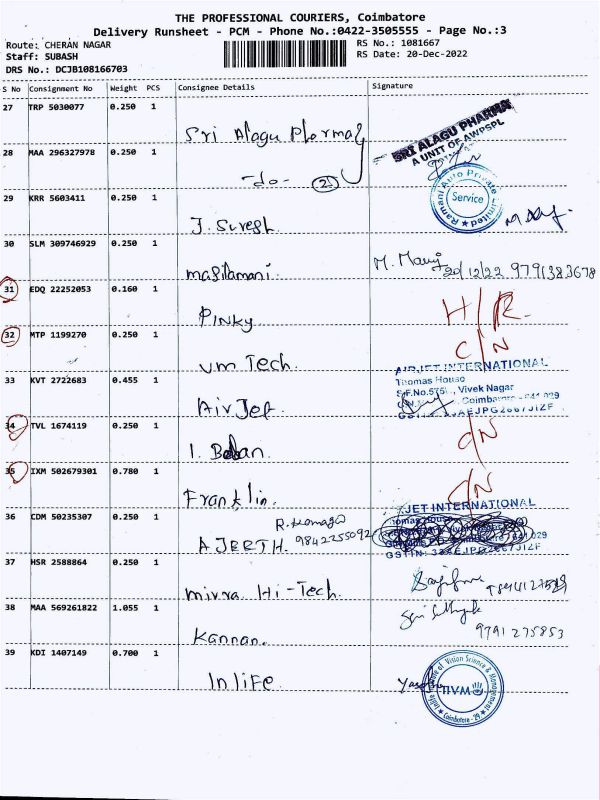 THE PROFESSIONAL COURIERS, Coimbatore
Delivery Runsheet - PCM - Phone No.:0422-3505555 - Page No.:3
Route: CHERAN NAGAR RS No.: 1081667
Staff: SUBASH RS Date: 20-Dec-2022
DRS No.: DCJB108166703
S No Consignment No Weight PCS Consignee Details Signature
27 TRP 5030077 0.250 1
Sri Alagu Pharmacy
SRI ALAGU PHARMA
A UNIT OF AWPSPL
28 MAA 296327978 0.250 1
-do- 21
29 KRR 5603411 0.250 1
J. Suresh
Ramani Auto Private Limited
Service
30 SLM 309746929 0.250 1
masilamani
M. Mani 20/12/22 9791383678
31 EDQ 22252053 0.160 1
Pinky
32 MTP 1199270 0.250 1
Vm Tech.
C/N
33 KVT 2722683 0.455 1
AirJet
AIRJET INTERNATIONAL
Thomas House
S.F.No.575/ , Vivek Nagar
Coimbatore - 641 029
34 TVL 1674119 0.250 1
C/N
35 IXM 502679301 0.780 1
Franklin.
C/N
JET INTERNATIONAL
36 CDM 50235307 0.250 1
AJEETH. 9842255092
37 HSR 2588864 0.250 1
Mirra Hi-Tech.
38 MAA 569261822 1.055 1
Kannan.
9791275853
39 KDI 1407149 0.700 1
Inlife.
of Vision Science & Management
IIVM
Coimbatore - 29